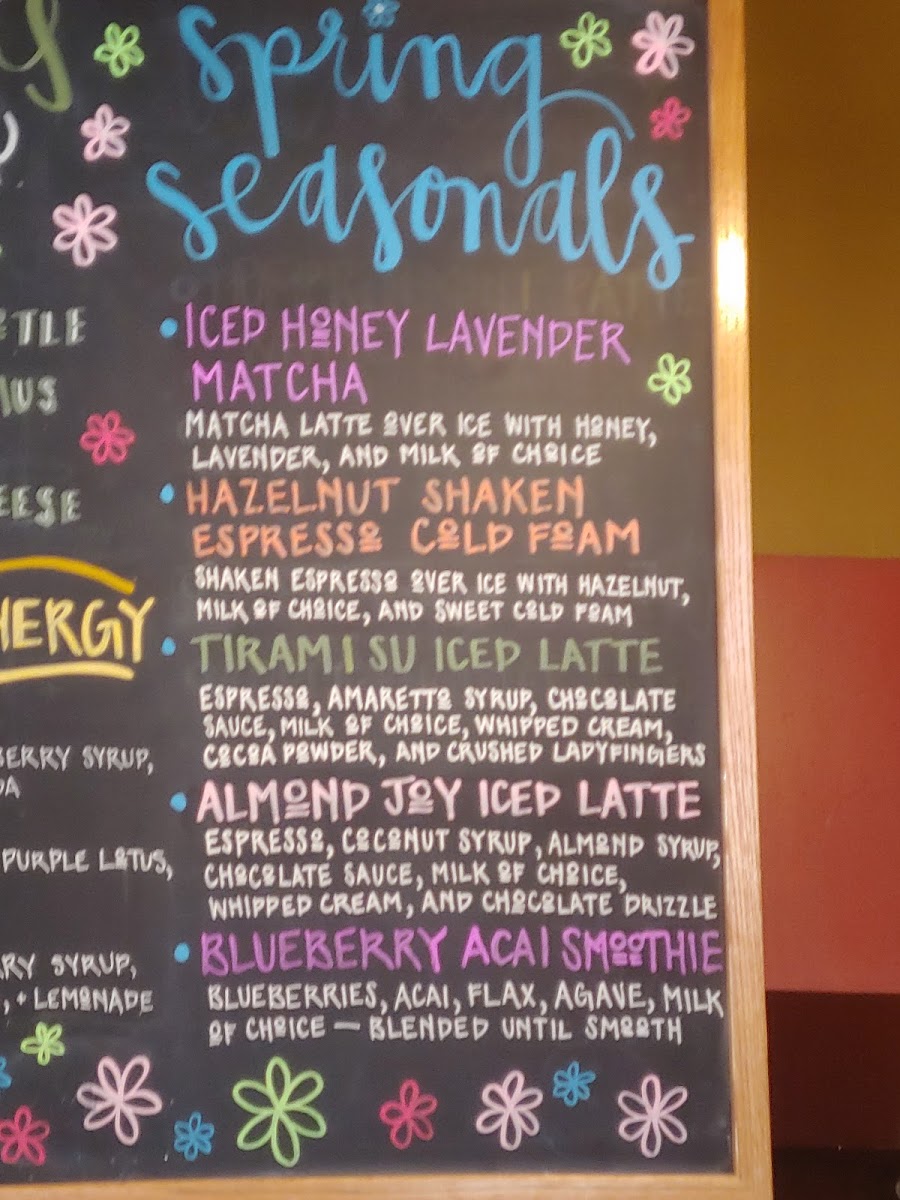 Spring
Seasonals
• ICED HONEY LAVENDER
MATCHA
MATCHA LATTE OVER ICE WITH HONEY,
LAVENDER, AND MILK OF CHOICE
• HAZELNUT SHAKEN
ESPRESSO COLD FOAM
SHAKEN ESPRESSO OVER ICE WITH HAZELNUT,
MILK OF CHOICE, AND SWEET COLD FOAM
• TIRAMISU ICED LATTE
ESPRESSO, AMARETTO SYRUP, CHOCOLATE
SAUCE, MILK OF CHOICE, WHIPPED CREAM,
COCOA POWDER, AND CRUSHED LADYFINGIERS
• ALMOND JOY ICED LATTE
ESPRESSO, COCONUT SYRUP, ALMOND SYRUP,
CHOCOLATE SAUCE, MILK OF CHOICE,
WHIPPED CREAM, AND CHOCOLATE DRIZZLE
• BLUEBERRY ACAI SMOOTHIE
BLUEBERRIES, ACAI, FLAX, AGAVE, MILK
OF CHOICE — BLENDED UNTIL SMOOTH
SYRUP,
PURPLE LOTUS,
SYRUP,
, + LEMONADE